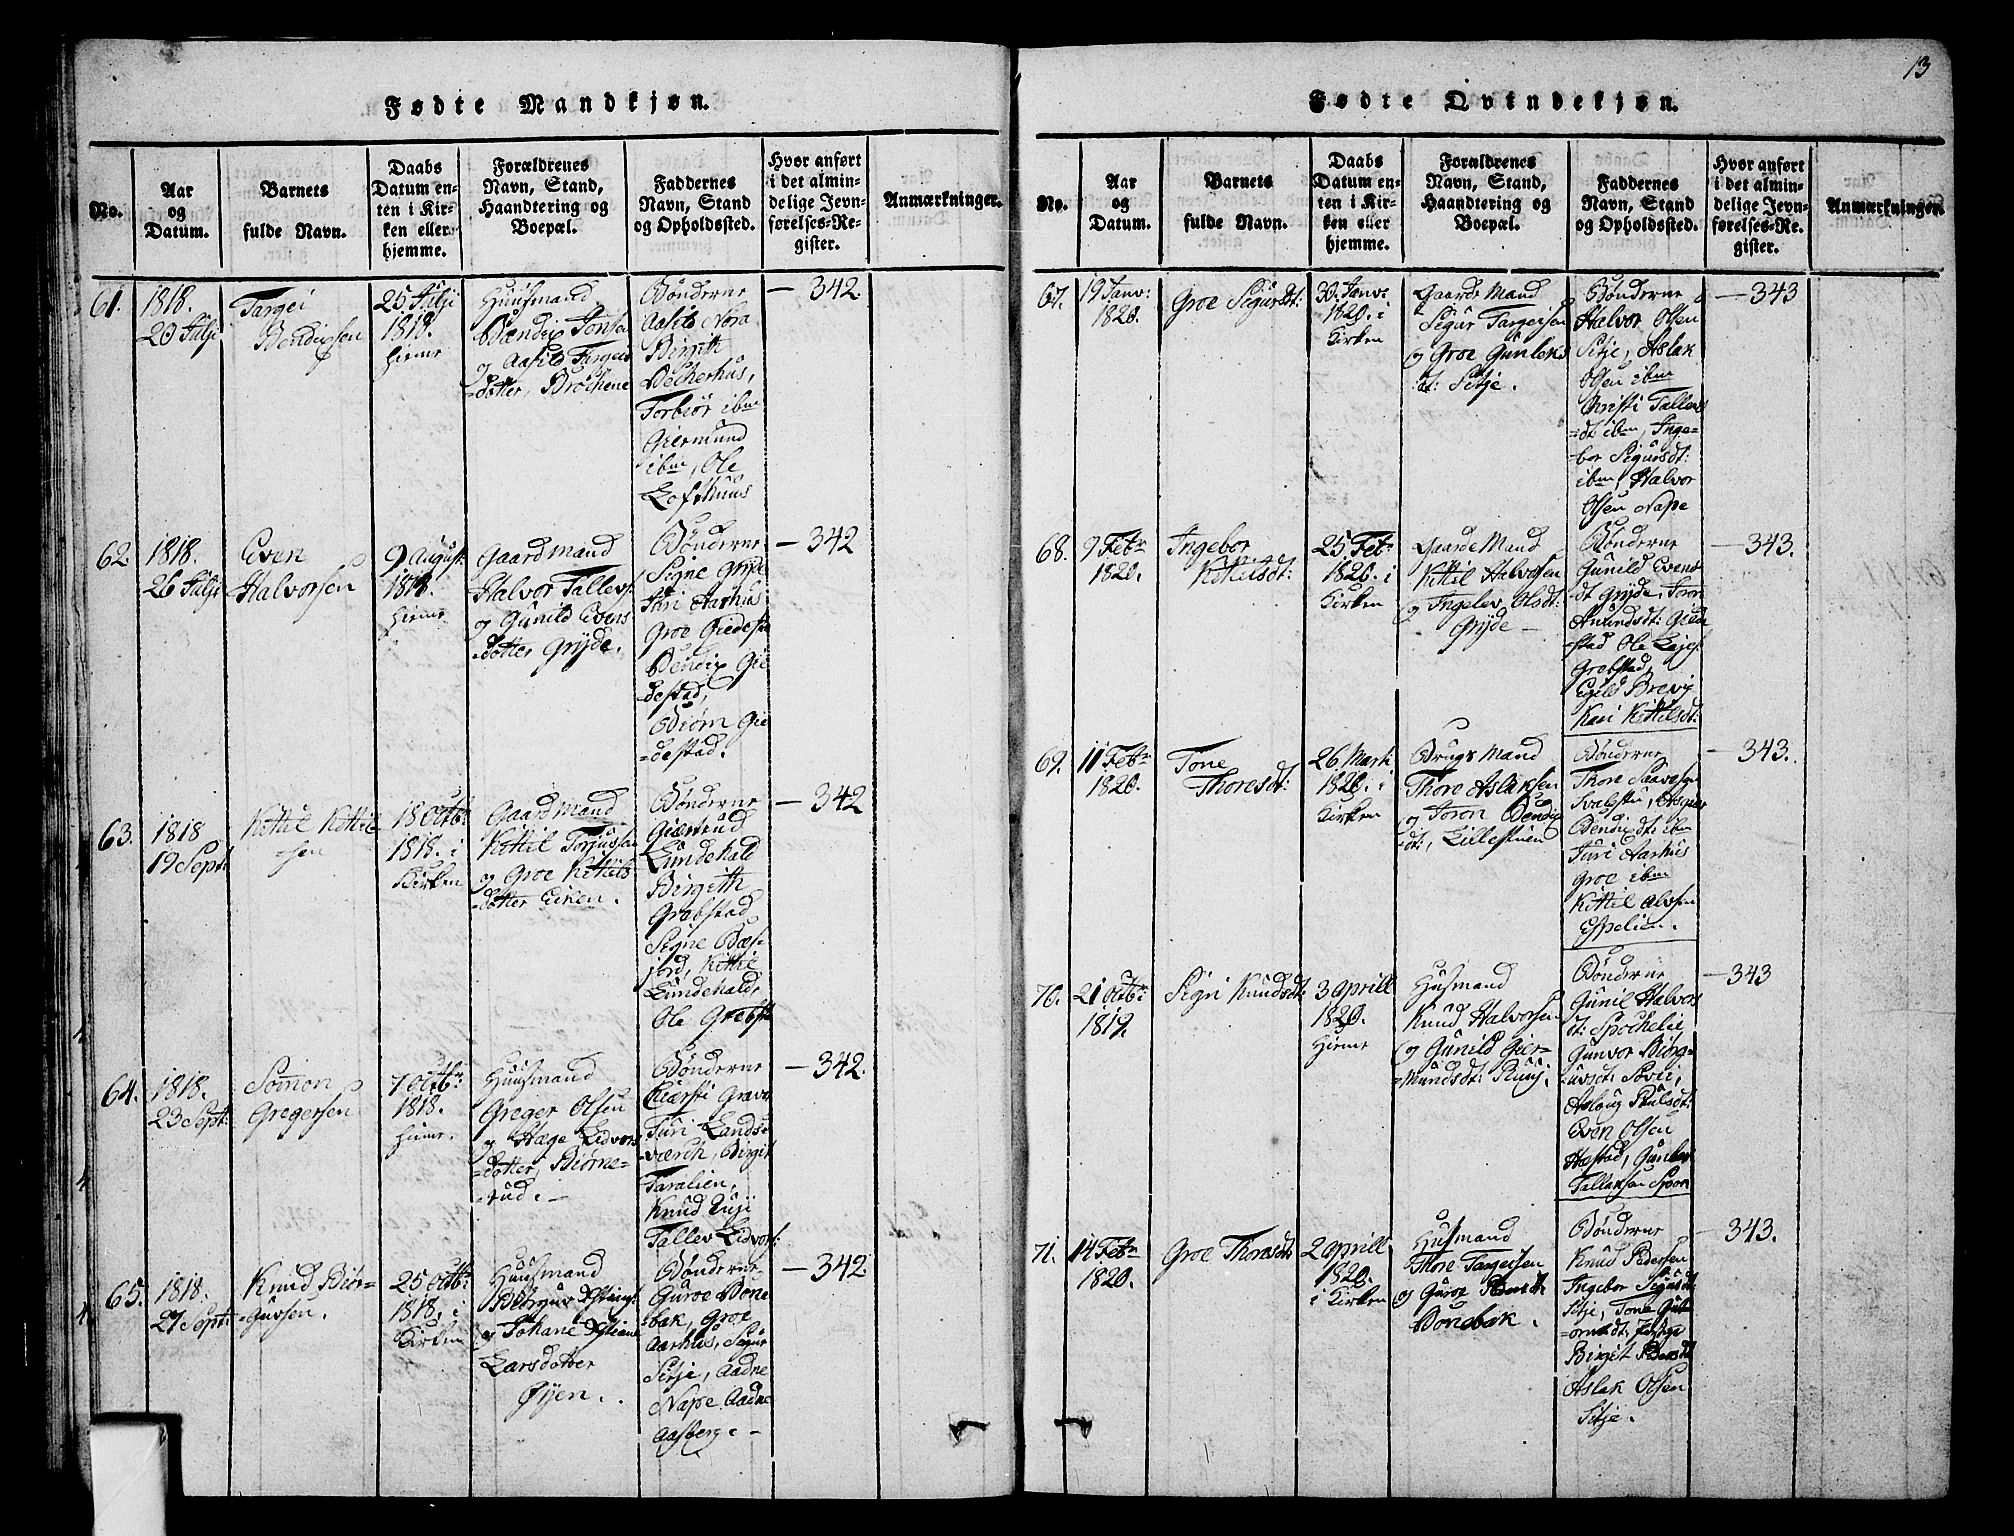 13
Fødte Mandkjøn.
No.
Aar
og
Datum.
Barnets
fulde Navn.
Daabs
Datum en-
ten i Kir-
ken eller
hjemme.
Forældrenes
Navn, Stand,
Haandtering og
Boepæl.
Faddernes
Navn, Stand
og Opholdssted.
Hvor anført
i det almin-
delige Jevn-
førelses-Re-
gister.
Anmærkninger.
61.
1818.
23 Julji
Targei
Bendixsen
25 Julji
1818.
hieme
Huusmand
Bendix Jonsen
og Aasild Targeis
=dotter, Brochene
Bønderne
Aasild Nora
Birgith
Beckerhus,
Torbiør ibm
Giermund
ibm, Ole
Lofthuus
- 342
62.
1818.
26 Julji
Even
Halvorsen
9 August
1818.
hieme
Gaardmand
Halvor Tallevs:
og Gunild Evens
dotter Gryde.
Bønderne
Signe Gryde
Juri Aarhus
Groe Giedesta
Bendix Gie
destad,
Biørn Gie
=destad.
- 342
63.
1818
19 Sept:
Kittil Kittil
=sen
18 Octb:
1818. i
Kirken
Gaardmand
Kittil Torjussen
og Groe Kittils
=dotter Eiken.
Bønderne
Giertrud
Lundehald
Birgith
Grobstad
Signe Bæs-
jord, Kittil
Lundehald,
Ole Grobsta
- 342
64.
1818.
23 Sept:
Somon
Gregersen
7 Octb:
1818.
hieme.
Huusmand
Greger Olsen
og Hæge Lidvors
=dotter, Biørne=
=rud.-
Bønderne
Kiersti Gravo
Juri Lands=
=værch, Birgit
Taralien,
Knud Luji
Tallev Lidvors:
- 342.
65.
1818.
27 Sept:
Knud Biør-
=gufsen.
25 Octb:
1818. i
Kirken
Huusmand
og Johane
Larsdotter
Øyen.
Bønderne
Guroe Bone
bak, Groe
Aarhus, Sigur
Sitje, Aadne
Nape Aadne
Aasberg.-
- 342.
Fødte Qvindekjøn.
No.
Aar
og
Datum.
Barnets
fulde Navn.
Daabs
Datum en-
ten i Kir-
ken eller
hjemme.
Forældrenes
Navn, Stand,
Haandtering og
Boepæl.
Faddernes
Navn, Stand
og Opholdssted.
Hvor anført
i det almin-
delige Jevn-
førelses-Re-
gister.
Anmærkninger.
67.
19 Janv:
1820.
Groe Sigursdt:
30. Janv:
1820. i
Kirken
Gaarde Mand
Sigur Targeisen
og Groe Gunleks
:dt: Sitje.
Bønderne
Halvor Olsen
Sitje, Aslak
Olsen ibm
Christi Tallevs
=dt ibm, Inge=
=bor Sigursdt:
ibm, Halvor
Olsen Nape
- 343
68.
9 Febr
1820.
Ingebor
Kittilsdt:
25 Feb:
1820. i
Kirken
Gaarde Mand
Kittil Halvorsen
og Ingelev Olsdt:
Gryde -
Bønderne
Gunild Evens
dt Gryde, Toron
Amundsdt: Gied
=stad Ole
Grobstad,
Egild Brevig
Kari Kittilsdt:
- 343.
69.
11 Febr
1820.
Tone
Thoresdt:
26 Marti
1820. i
Kirken
Brugs Mand
Thore Aslaksen
og Toron Bendix
=dt, Lillestuen
Bønderne
Thore Saavesen
Bendixdt: ibm
Juri Aarhus
Groe ibm
Kittil Alvsen
Espelien.
- 343.
70.
21 Octb:
1819.
Sigri Knudsdt:
3 Aprill
1820.
Hieme
Husmand
Knud Halvorsen
og Gunild Gier=
=mundsdt: Ruuj.
Bønderne
Gunil Halvors
dt: Spockelie
Gunvor Biørg=
=uvsdt: Sovei,
Aslaug Paulsdt:
Even Olsen
Hæstad, Gunler
Tallaksen Spoon
- 343
71.
14 Febr
1820.
Groe Thoresdt:
2 Aprill
1820.
i Kirken
Husmand
Thore Targeisen
og Guroe
Bonebak.
Bønderne
Knud Pedersen
Ingebor Sigursdt
Sitje, Tone Gut
=ormsdt,
Birgit
Aslak Olsen
Sitje.
- 343.